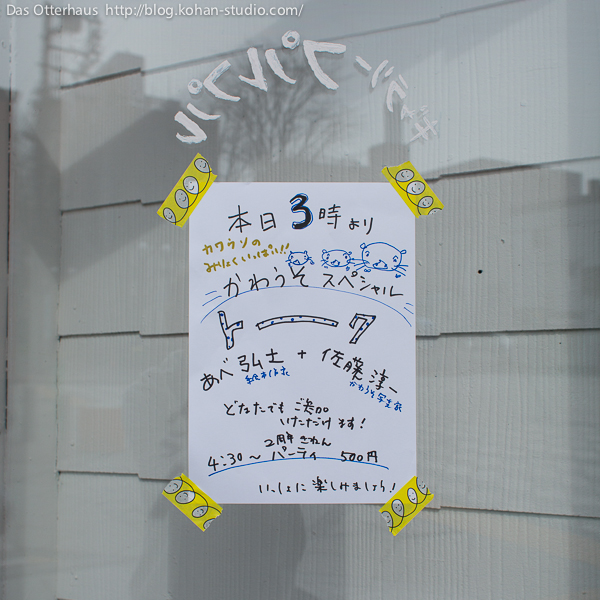 Das Otterhaus http://blog.kohan-studio.com/
ギャラリープルプル
本日3時より
カワウソの
みりょくいっぱい!!
かわうそスペシャル
トーク
あべ弘士 + 佐藤淳一
絵本作家 かわうそ写真家
どなたでもご参加
いただけます!
2周年きねん
4:30〜パーティ 500円
いっしょに楽しみましょう!